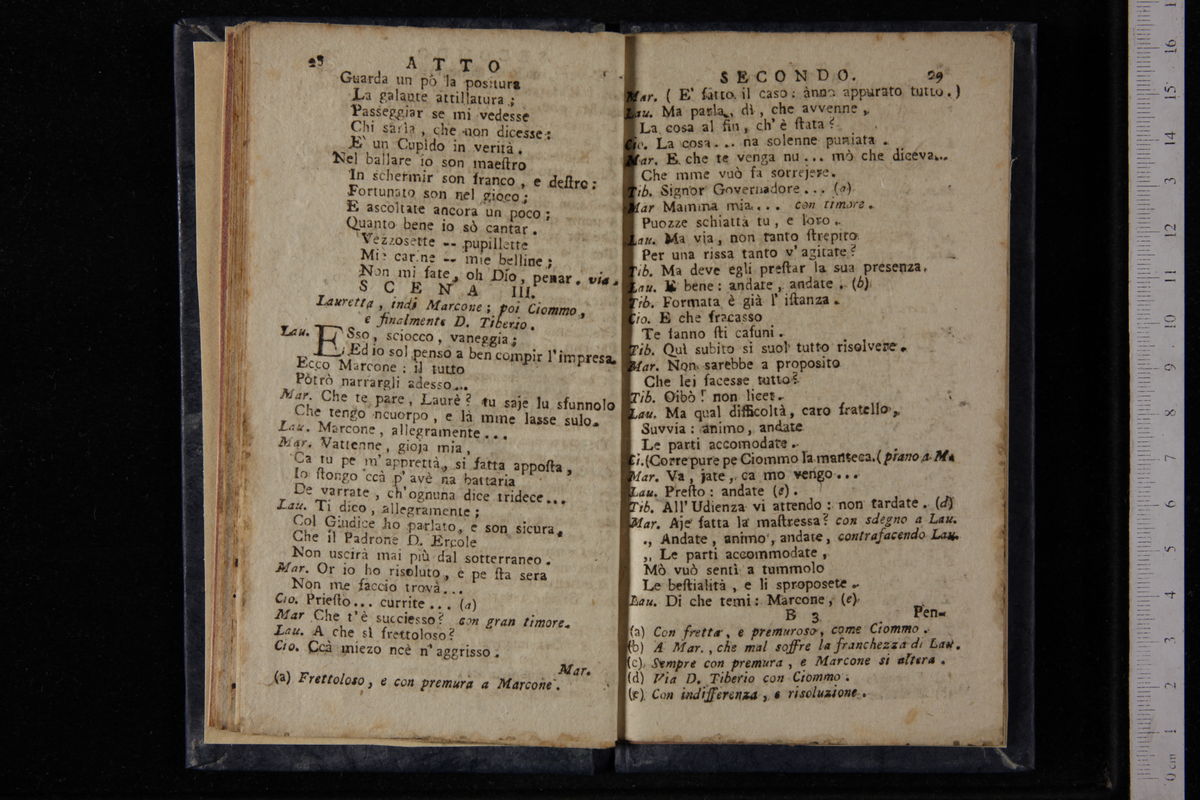 28 ATTO
Guarda un pò la positura
La galante attillatura;
Passeggiar se mi vedesse
Chi sarla, che non dicesse:
E' un Cupido in verità.
Nel ballare io son maeſtro
In schermir son franco, e deſtro:
Fortunato son nel gioco;
E ascoltate ancora un poco;
Quanto bene io sò cantar.
Vezzosette -- pupillette
Mie carine -- mie belline;
Non mi fate, oh Dio, penar. via.
SCENA III.
Lauretta, indi Marcone; poi Ciommo,
e finalmente D. Tiberio.
Lau. ESso, sciocco, vaneggia;
Ed io sol penso a ben compir l'impresa.
Ecco Marcone: il tutto
Potrò narrargli adesso...
Mar. Che te pare, Laurè? tu saje lu sfunnolo
Che tengo ncuorpo, e là mme lasse sulo.
Lau. Marcone, allegramente...
Mar. Vattenne, gioja mia,
Ca tu pe m'apprettà, si fatta appoſta,
Io ſtongo ccà p' avè na battaria
De varrate, ch'ognuna dice tridece...
Lau. Ti dico, allegramente;
Col Giudice ho parlato, e son sicura,
Che il Padrone D. Ercole
Non uscirà mai più dal sotterraneo.
Mar. Or io ho risoluto, e pe ſta sera
Non me faccio trovà...
Cio. Prieſto... currite... (a)
Mar Che t'è succiesso? con gran timore.
Lau. A che sì frettoloso?
Cio. Ccà miezo ncè n'aggrisso.
Mar.
(a) Frettoloso, e con premura a Marcone.
SECONDO. 29
Mar. (E' fatto il caso: ànno appurato tutto.)
Lau. Ma parla, dì, che avvenne,
La cosa al fin, ch'è ſtata?
Cio. La cosa... na solenne puniata.
Mar. E che te venga nu... mò che diceva...
Che mme vuò fa sorrejere.
Tib. Signor Governadore... (a)
Mar Mamma mia.... con timore.
Puozze schiattà tu, e loro.
Lau. Ma via, non tanto ſtrepito
Per una rissa tanto v'agitate?
Tib. Ma deve egli preſtar la sua presenza.
Lau. E bene: andate, andate. (b)
Tib. Formata è già l' iſtanza.
Cio. E che fracasso
Te fanno ſti cafuni.
Tib. Quì subito si suol tutto risolvere.
Mar. Non sarebbe a proposito
Che lei facesse tutto?
Tib. Oibò! non licet.
Lau. Ma qual difficoltà, caro fratello,
Suvvia: animo, andate
Le parti accomodate.
Ci. (Corre pure pe Ciommo la manteca. (piano a M.
Mar. Va, jate, ca mo vengo...
Lau. Preſto: andate (c).
Tib. All'Udienza vi attendo: non tardate. (d)
Mar. Aje fatta la maſtressa? con sdegno a Lau.
,, Andate, animo, andate, contrafacendo Lau.
,, Le parti accommodate,
Mò vuò sentì a tummolo
Le beſtialità, e li sproposete.
Lau. Di che temi: Marcone, (e)
B 3 Pen-
(a) Con fretta, e premuroso, come Ciommo.
(b) A Mar., che mal soffre la franchezza di Lau.
(c) Sempre con premura, e Marcone si altera.
(d) Via D. Tiberio con Ciommo.
(e) Con indifferenza, e risoluzione.
0 cm 1 2 3 4 5 6 7 8 9 10 11 12 13 14 15 16